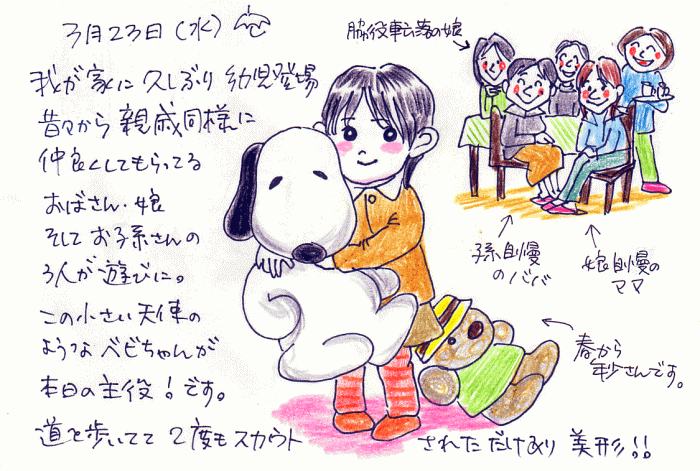 3月23日(水)
我が家に久しぶり幼児登場
昔々から親戚同様に
仲良くしてもらってる
おばさん・娘
そしてお子系さんの
3人が遊びに。
この小さい天使の
ようなベビちゃんが
本日の主役!です。
道を歩いてて2度もスカウト されただけあり 美形!!
脇役転落の娘
孫自慢
のババ
娘自慢の
ママ
春から
年少さんです。